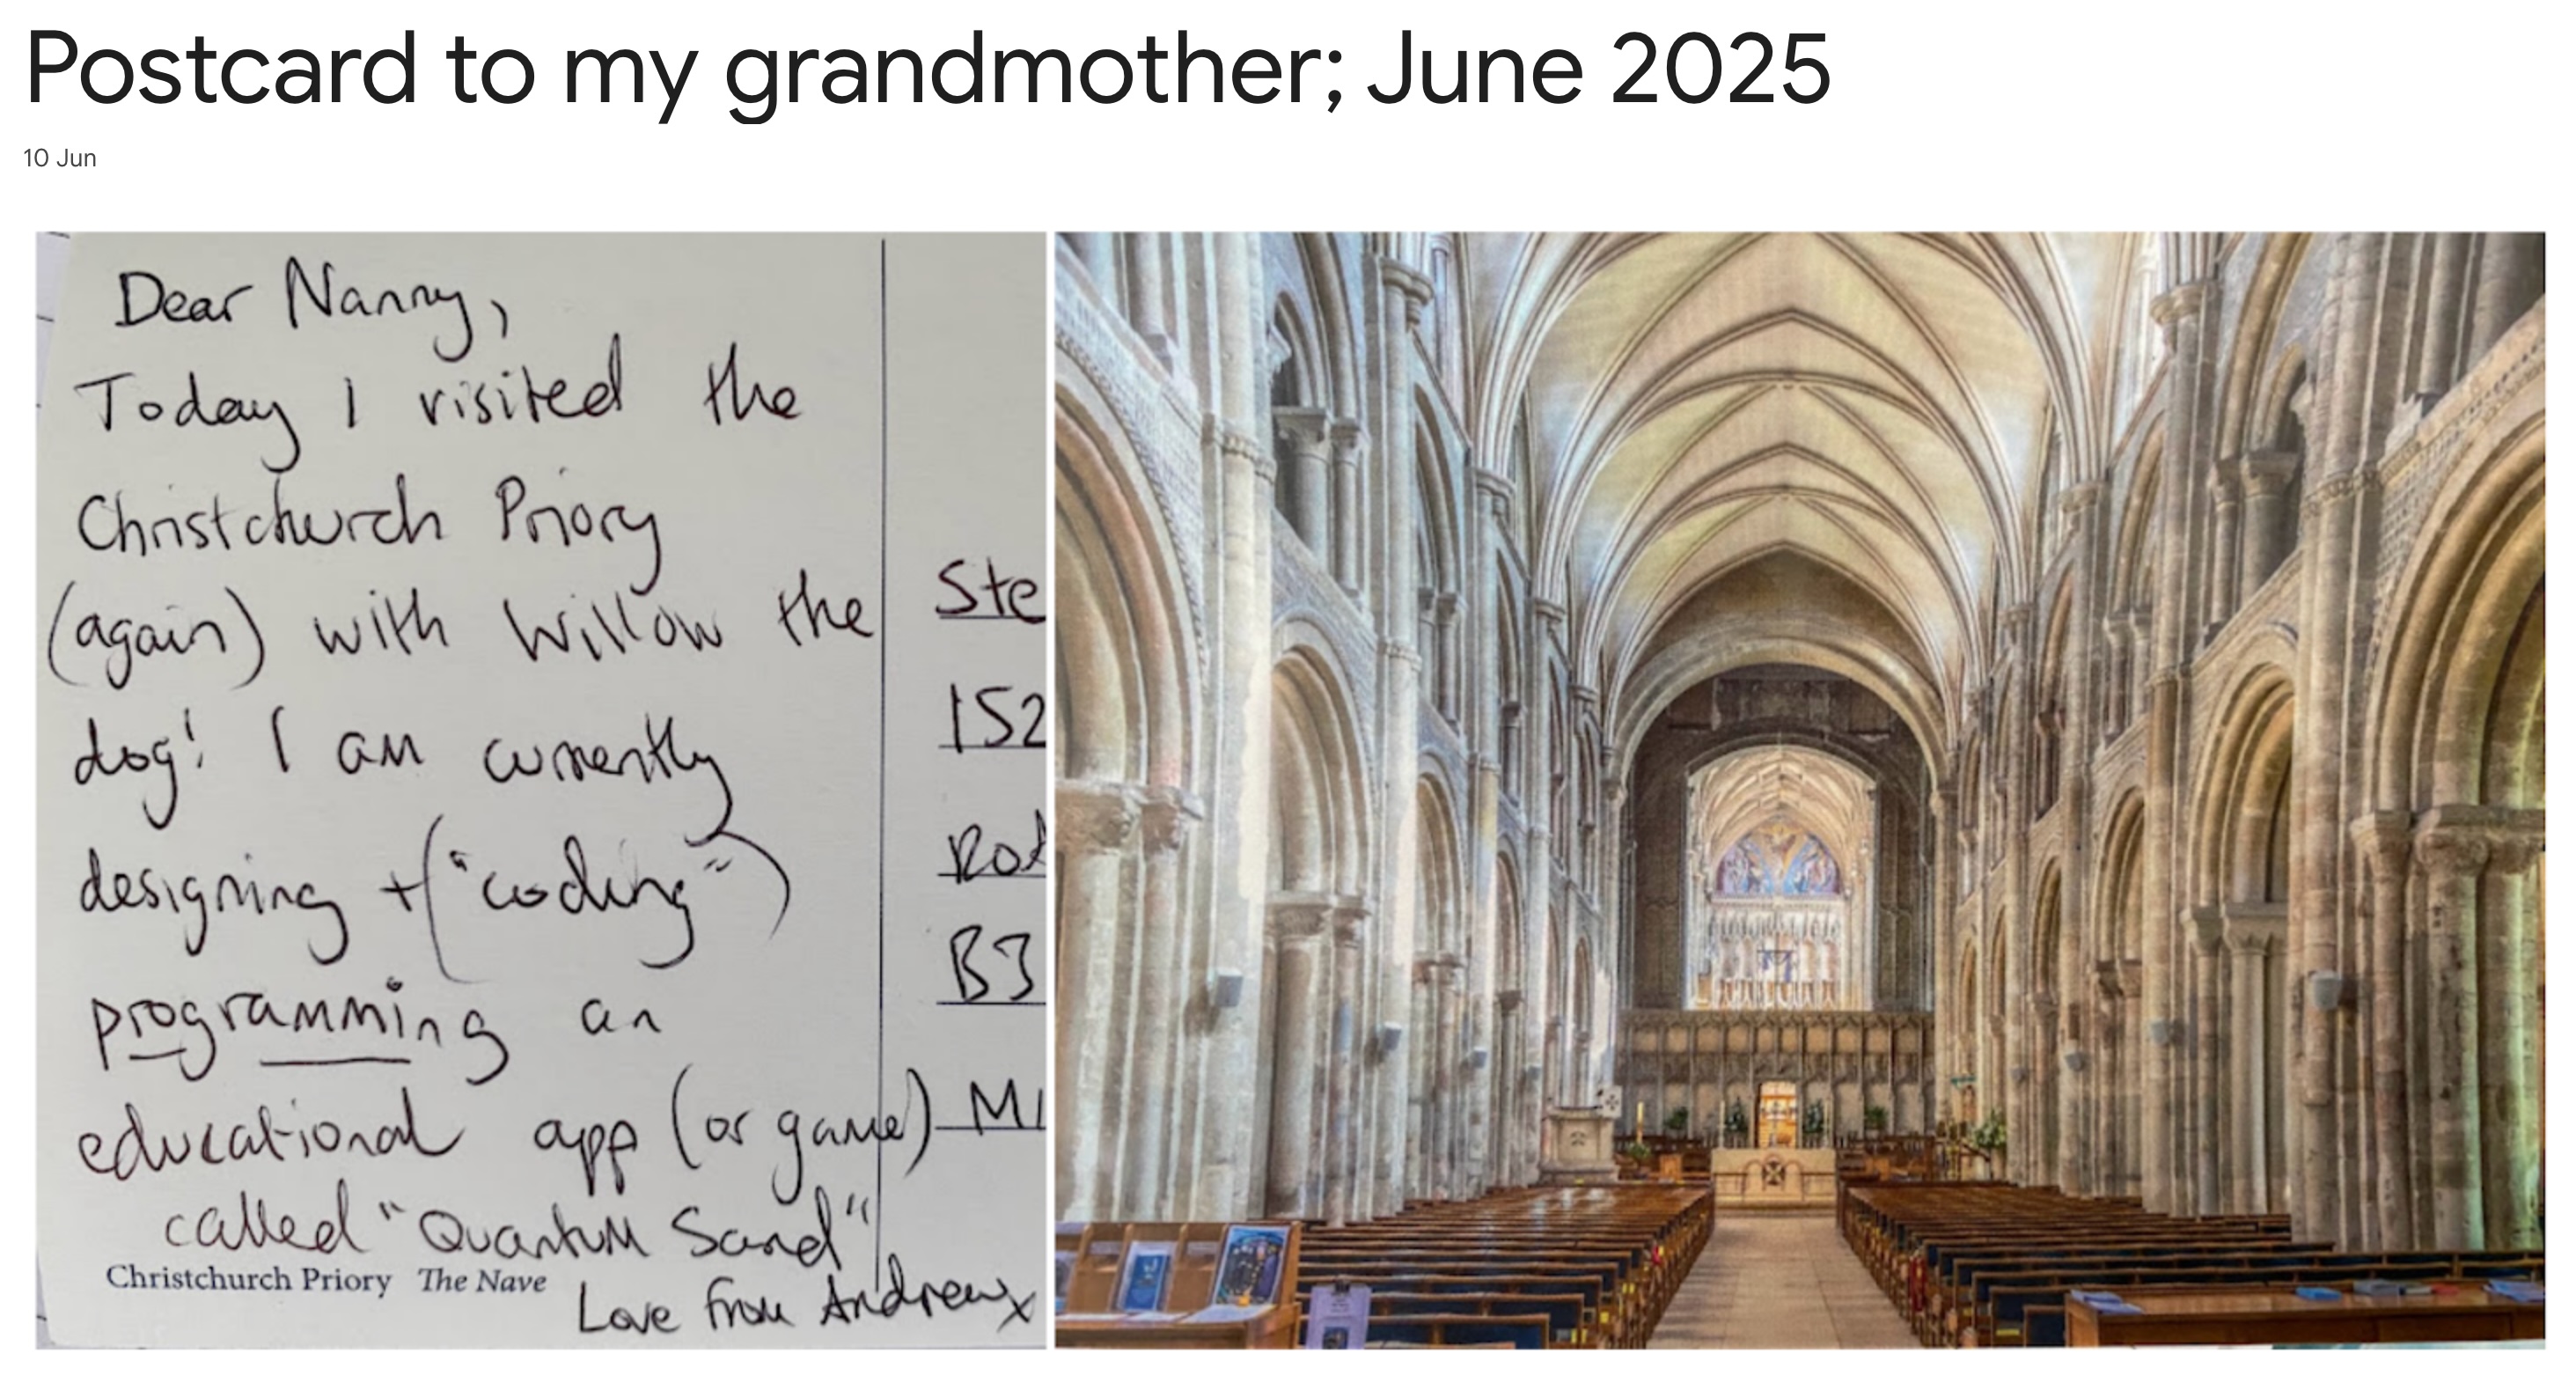 Postcard to my grandmother; June 2025
10 Jun
Dear Nanny,
Today I visited the
Christchurch Priory
(again) with Willow the
dog! I am currently
designing + ("coding")
programming an
educational app (or game)
called "Quantum Sand"
Christchurch Priory The Nave
Love from Andrew x
Ste
152
B3